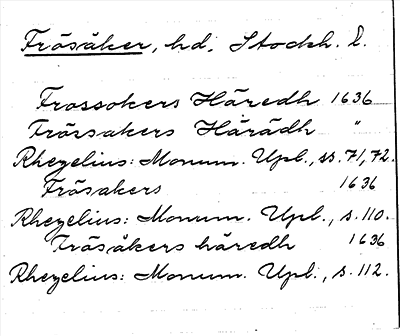 Frösåker, hd, Stockh. l.
Frossokers Häredh 1636
Frörsakers Härädh "
Rhezelius: Monum. Upl., ss. 71, 72.
Frösakers 1636
Rhezelius: Monum. Upl., s. 110.
Fräsåkers häredh 1636
Rhezelius: Monum. Upl., s. 112.